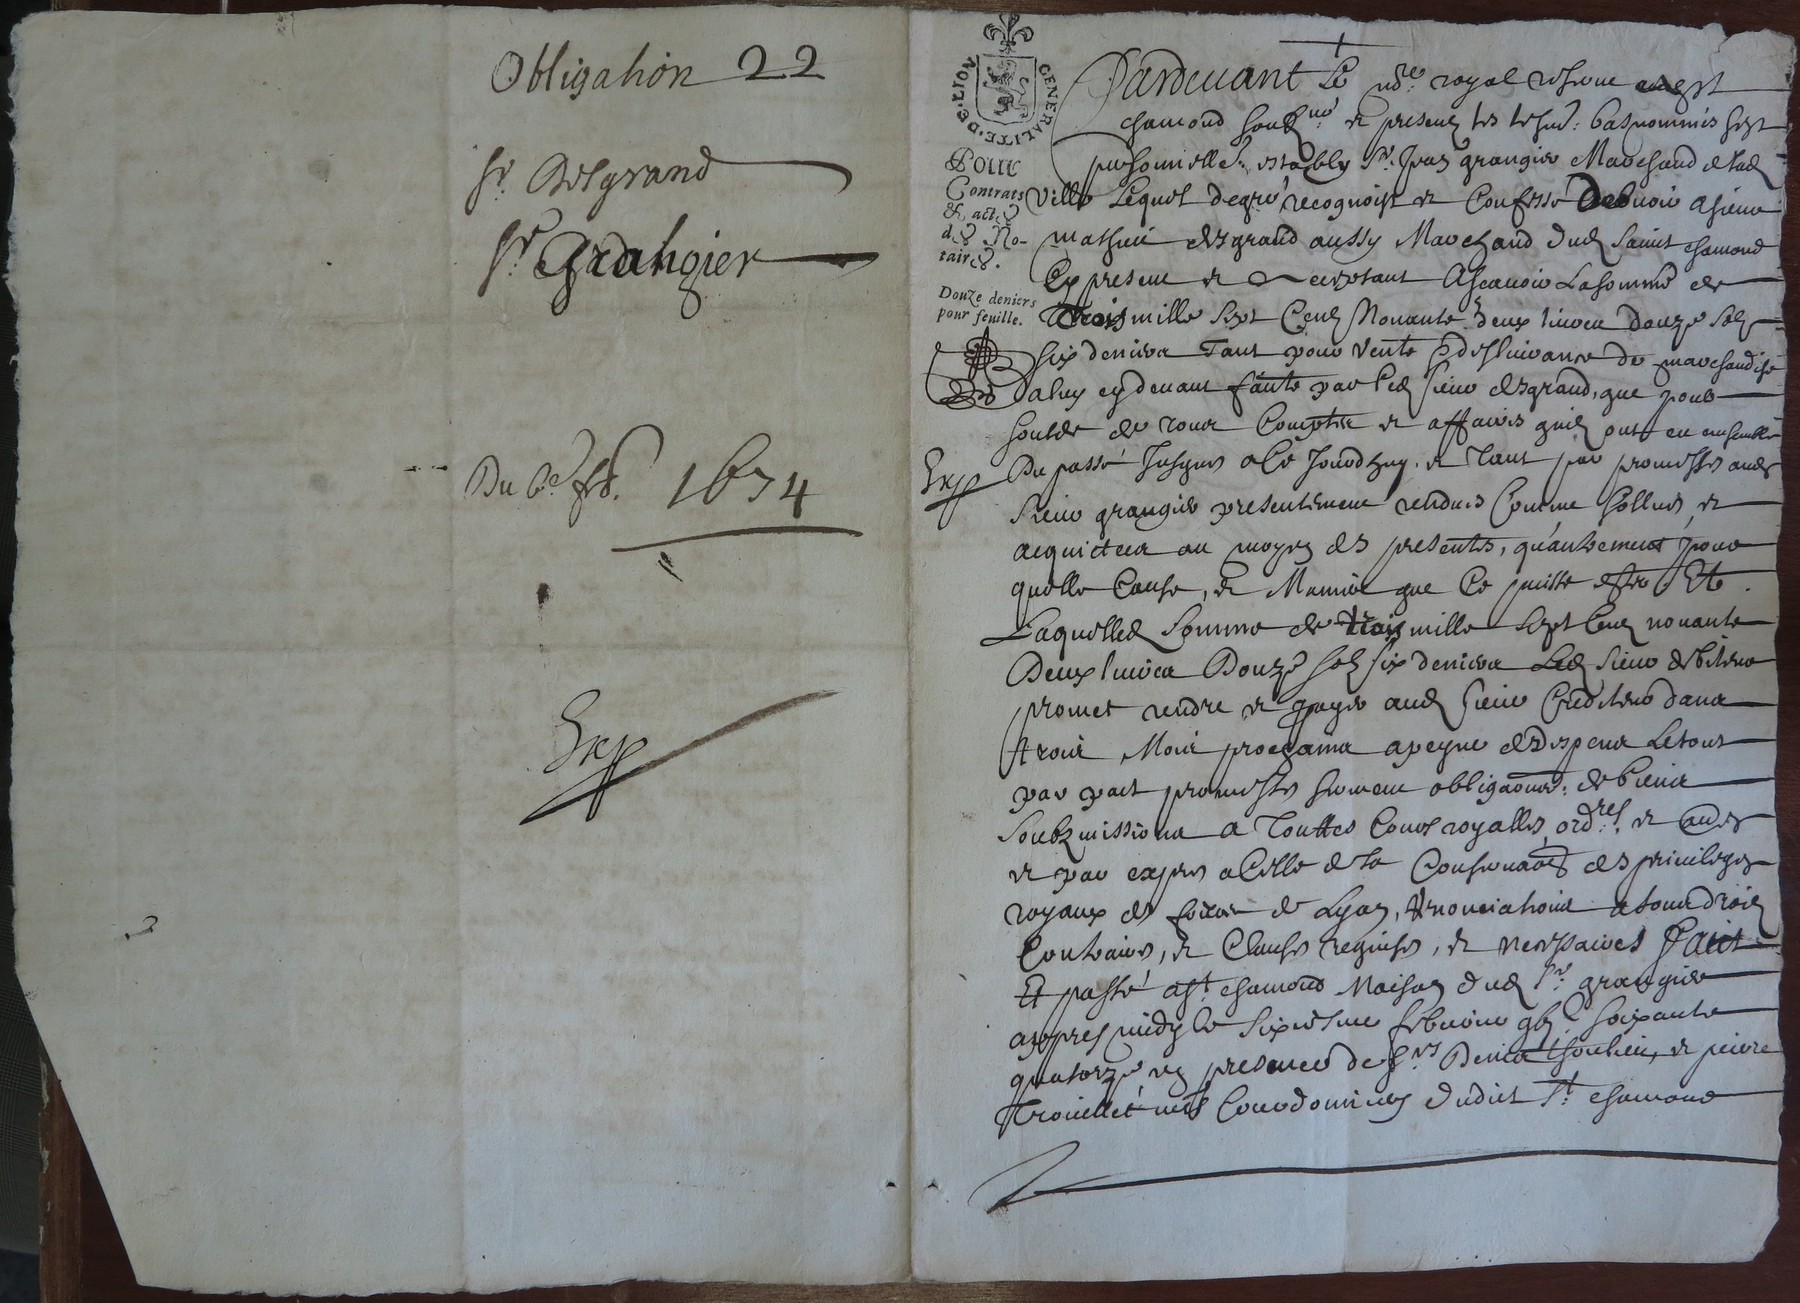 Obligation 22
Sr. Desgrand
Sr Grangier
Du 6e feb. 1674
Exp
GENERALITE·DE·LION
Pour
Contrats
& actes
des No-
taires.
Douze deniers
pour feuille.
Exp
Pardevant Le nore royal resserve a St
chamond soubzné et presentz les tesm: bas nommés sest
personnelle: estably Sr. Jean grangier Marchand dela d
ville Lequel de gré recognoist et Confesse Debvoir a sieur
mathieu desgrand aussy Marchand dud Sainct chamond
Cy present et acceptant Ascavoir La somme de
Trois mille Sept Centz Nonante deux livres douze solz
Six deniers Tant pour Vente & deslivrance de marchandise
a luy cy devant faicte par led sieur desgrand, que pour
soulde de tous Comptes et affaires quilz ont eu ensemble
Du passé Jusques a Ce Jourdhuy, et Tant par promesses aud
Sieur grangier presentement rendues Comme sollues et
acquictees au moyen des presentes, qu'autrement pour
quelle Cause, et Maniere que Ce puisse estre Et
Laquelled Somme de trois mille Sept Centz nonante
Deux livres Douze solz six deniers Led sieur debiteur
promet rendre et payer aud sieur Crediteur dans
trois Mois prochains a peyne de despens Le tout
par pact promesses serment obligaons: de biens
Soubzmissions a Touttes Cours royalles, ordres. et audes
et par expres a Celle de la Conservaon des privileges
royaux des foires de Lyon, Renonciations a tous droictz
Contraires, et Clauses requises, et necessaires Faict
Et passé a St. chamond Maison dud Sr. grangier
appres midy le Sixiesme febvrier gbjc soixante
quatorze en presence de Srs Denis Thoulieu, et pierre
Trouillet mes Courdonniers dudict St. chamond